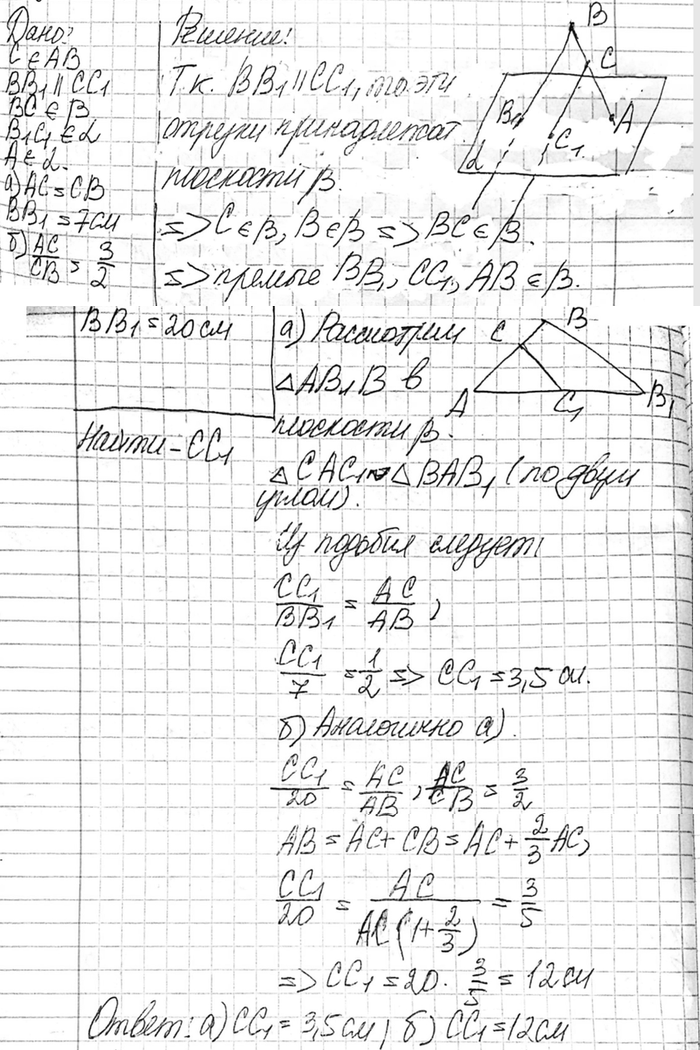 Дано:
C ∈ AB
BB₁ || CC₁
BC ∈ β
B₁C₁ ∈ α
A ∈ α.
а) AC = CB
BB₁ = 7 см
б) AC/CB = 3/2
Решение:
Т.к. BB₁ || CC₁, то эти
отрузки принадлежат
плоскости β.
=> C ∈ β, B ∈ β => BC ∈ β.
=> прямые BB₁, CC₁, AB ∈ β.
B
C
B₁
C₁
A
α
BB₁ = 20 см
Найти - CC₁
а) Рассмотрим
△AB₁B в
плоскости β.
△CAC₁ ~ △BAB₁ (по двум
углам).
Из подобия следует:
CC₁/BB₁ = AC/AB,
CC₁/7 = 1/2 => CC₁ = 3,5 см.
б) Аналогично а).
CC₁/20 = AC/AB, AC/CB = 3/2
AB = AC + CB = AC + 2/3 AC,
CC₁/20 = AC/AC(1 + 2/3) = 3/5
=> CC₁ = 20 · 3/5 = 12 см
Ответ: а) CC₁ = 3,5 см; б) CC₁ = 12 см
C
B
A
C₁
B₁